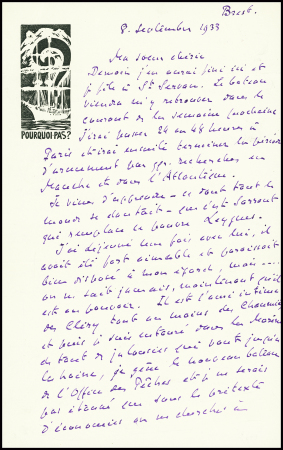 Brest.
8. Septembre 1933
POURQUOI-PAS?
Ma soeur chérie
Demain j'en aurai fini ici et
je file à St Servan. Le bateau
viendra m'y retrouver dans le
courant de la semaine prochaine
J'irai passer 24 ou 48 heures à
Paris et irai ensuite terminer la période
d'armement par qq. recherches en
Manche et dans l'Atlantique.
Je viens d'apprendre - ce dont tout le
monde se doutait - que c'est Sarraut
qui remplace ce pauvre Leygues.
J'ai déjeuné une fois avec lui, il
avait été fort aimable et paraissait
bien disposé à mon égard, mais....
on ne sait jamais, maintenant qu'il
est au pouvoir. Il est l'ami intime
de tout au moins des
et puis je suis entouré dans la Marine
de tant de jalousies qui vont jusqu'à
la haine, je gêne le nouveau bateau
de l'Office des Pêches et je ne serais
pas étonné que sous le prétexte
d'économies on ne cherche à